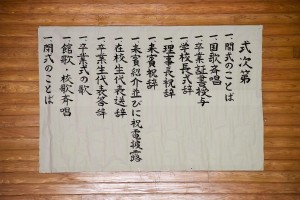 式次第
一、開式のことば
一、国歌斉唱
一、卒業証書授与
一、学校長式辞
一、理事長祝辞
一、来賓祝辞
一、来賓紹介並びに祝電披露
一、在校生代表送辞
一、卒業生代表答辞
一、卒業式の歌
一、館歌・校歌斉唱
一、閉式のことば